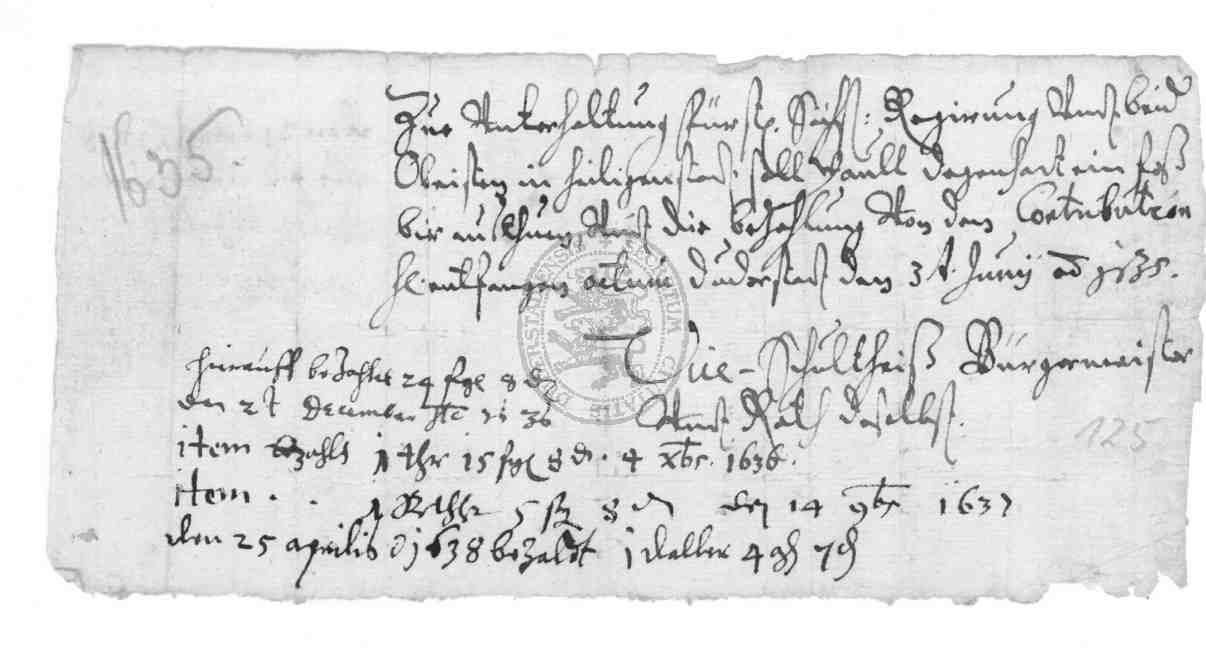 1635.
Zur Unterhaltung fürstl. Sächs: Regirung Undt beid
Obristen in heiligenstadt soll Paull Degenhart ein faß
bir außthuen Undt die bezahlung Von den Contribution
entfangen actum Duderstadt den 3 t. Junij ao 1635.
Die Schultheiß Bürgermeister
Undt Rath daselbst.
hierauff bezahlt 24 fgl 8 d
den 21 december 1635
item bezahlt 1 thr 15 fgl 8 d. 4 xbr. 1636.
item . . 1 Rthlr 5 fg 8 d den 14 9br 1637
den 25 aprilis 1638 bezaldt 1 daller 4 gh 7 d
125